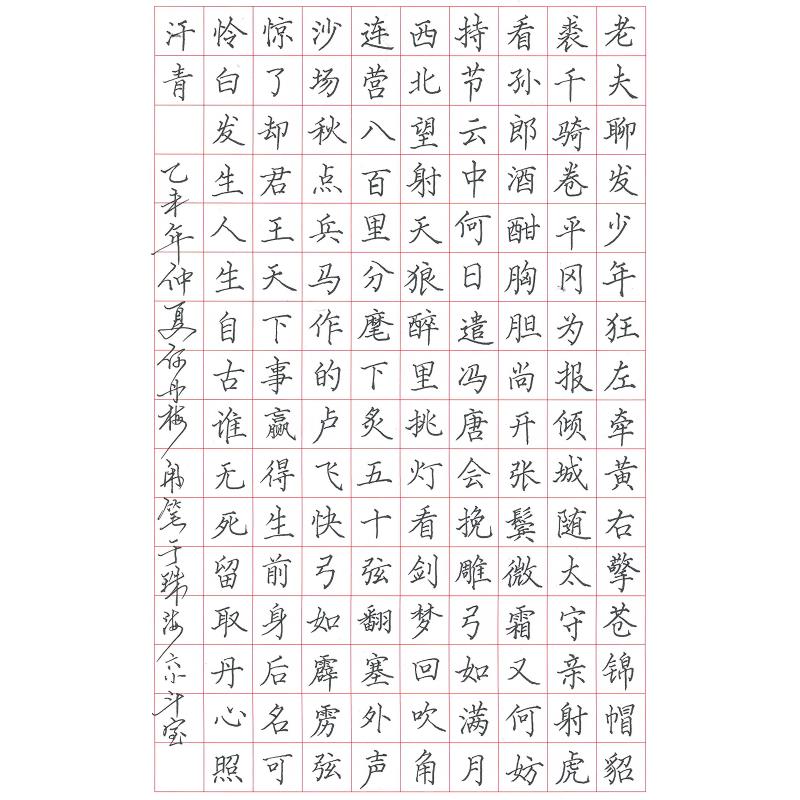 老夫聊发少年狂左牵黄右擎苍锦帽貂
裘千骑卷平冈为报倾城随太守亲射虎
看孙郎酒酣胸胆尚开张鬓微霜又何妨
持节云中何日遣冯唐会挽雕弓如满月
西北望射天狼醉里挑灯看剑梦回吹角
连营八百里分麾下炙五十弦翻塞外声
沙场秋点兵马作的卢飞快弓如霹雳弦
惊了却君王天下事赢得生前身后名可
怜白发生人生自古谁无死留取丹心照
汗青
乙未年仲夏何丹梅笔于珠海斗宝